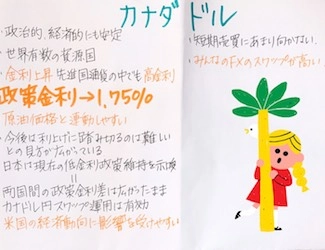 カナダドル
・政治的、経済的にも安定
・世界有数の資源国
・金利上昇 先進国通貨の中でも高金利
政策金利→1.75%
原油価格と連動しやすい
・今後は利上げに踏み切るのは難しい
との見方が広がっている
日本は現在の低金利政策維持を示唆
||
両国間の政策金利差は広がったまま
カナダドル円スワップ運用は有効
米国の経済動向に影響を受けやすい
・短期売買にあまり向かない
・みんなのFXのスワップが高い